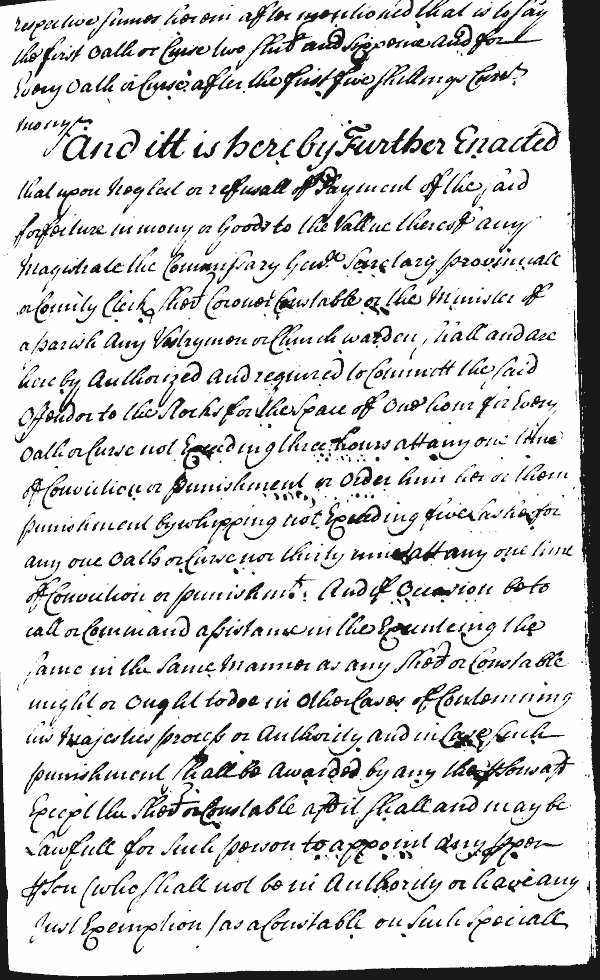 respective sumes herein after mentioned that is to say
the first Oath or Curse two Shill and Sixpence And for
Every Oath or Curse after the first five shillings Curr.t
mony
And itt is hereby Further Enacted
that upon Neglect or refusall of Payment off the said
forfeiture in mony or Goods to the Vallue thereof any
Magistrate the Commissary Gen.ll Secretary provinciall
or County Clerk Sher Coroner Constable or the Minister off
a parish Any Vestrymen or Church warden shall and are
hereby Authorized And required to Committ the said
Offendor to the Stocks for the space off One hour for Every
Oath or Curse not Exceeding three hours att any one time
off Conviction or punishment or Order him her or them
punishment by whipping not Exceeding five Lashes for
any one Oath or Curse nor thirty nine att any one time
off Conviction or punishm.t And if Occasion be to
call or Command assistance in the Executeing the
same in the same Manner as any Sher or Constable
might or Ought to doe in Other Cases of Contemning
his Majesties process or Authority and in Case such
punishment shall be Awarded by any the psons afd
Except the Sher or Constable afd it shall and may be
Lawfull for such person to appoint any
pson (who shall not be in Authority or have any
Just Exemption) as a Constable on such speciall